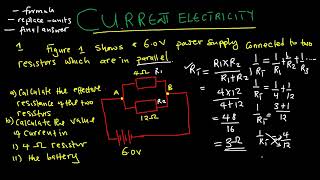 - formula
- replace - units
- final answer
CURRENT ELECTRICITY
1 Figure 1 shows a 6.0V power supply connected to two
resistors which are in parallel.
a) Calculate the effective
resistance of the two
resistors
b) Calculate the value
of current in
i) 4Ω resistor
ii) the battery
4Ω R1
A B
R2
12Ω
6.0V
RT = R1 x R2
R1 + R2
= 4 x 12
4 + 12
= 48
16
= 3Ω
1/RT = 1/R1 + 1/R2 + 1/R3 ...
1/RT = 1/4 + 1/12
1/RT = 3+1
12
1/RT = 4/12